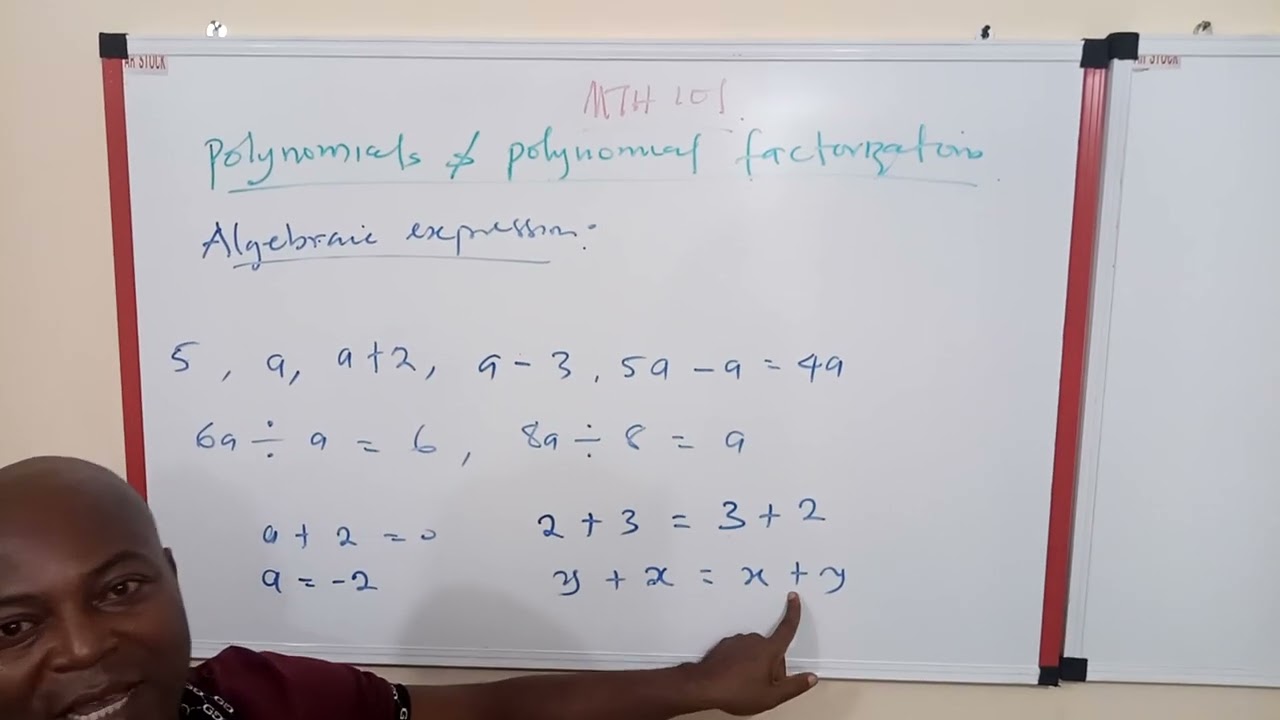 AR STOCK
AR STOCK
MTH 101
Polynomials & polynomial factorization
Algebraic expression:
5, a, a+2, a-3, 5a-a=4a
6a÷a=6, 8a÷8=a
a+2=0
a=-2
2+3=3+2
y+x=x+y